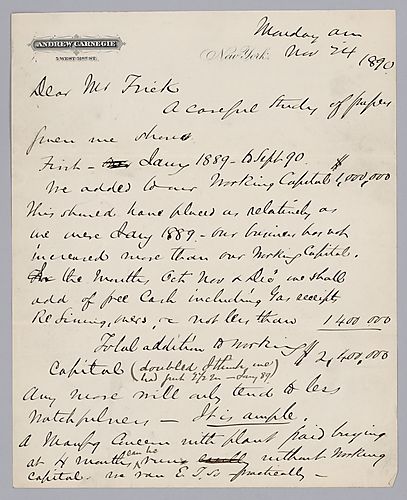 ANDREW CARNEGIE
5 WEST 51ST ST.
New York.
Monday am
Nov 24
1890
Dear Mr Frick
A careful study of papers
given me shows
First - Jany 1889 - to Sept 90.
We added to our Working Capital $1,000,000
This should have placed us relatively as
we were Jany 1889 - our business has not
increased more than our Working Capital.
In the Months Oct Nov & Dec we shall
add of free Cash including Gas receipt
ReSinning, over, or not less than 1 400 000
Total addition to working $2,400,000
Capital (doubled I think we
had just 2 1/2 m - Jany 89)
Any more will only tend to less
Watchfulness - It is ample.
A Manfg Concern with plant paid buying
at 4 months can be run without Working
capital. We ran E.T. so practically -